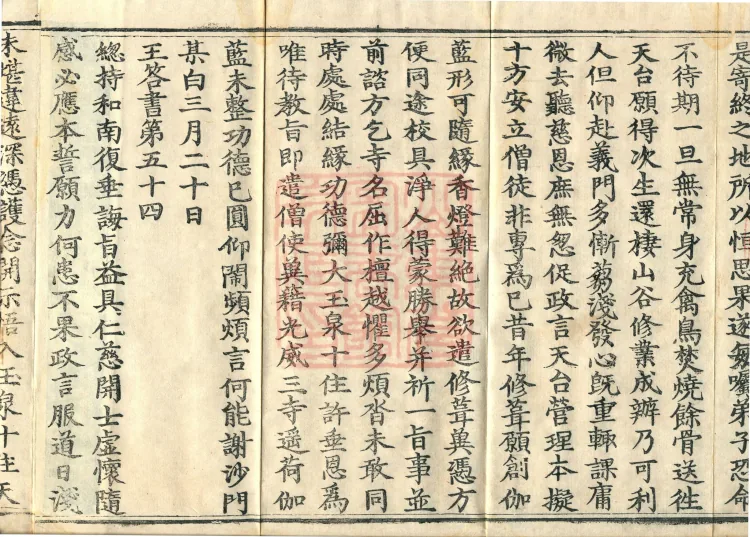 是寄終之地所以恒思果遂每囑弟子恐命
不待期一旦無常身充禽鳥焚燒餘骨送徃
天台願得次生還棲山谷修業成辨乃可利
人但仰赴義門多慚蒭淺發心旣重輙課庸
微去聽慈恩庶無忽促政言天台營理本擬
十方安立僧徒非專爲巳昔年修葺願創伽
藍形可隨緣香燈難絶故欲遣修葺兾憑方
便同途校具淨人得蒙勝舉并祈一旨事並
前諮方乞寺名屈作檀越懼多煩沓未敢同
時處處結緣功德彌大玉泉十住許垂恩爲
唯待教旨即遣僧使兾藉光威三寺遥荷伽
藍未整功德巳圓仰鬧頻煩言何能謝沙門
某白三月二十日
王荅書第五十四
緫持和南復垂誨旨益具仁慈開士虚懷隨
感必應本誓願力何患不果政言服道日淺
未堪違遠深憑護念開示悟入玉泉十住天